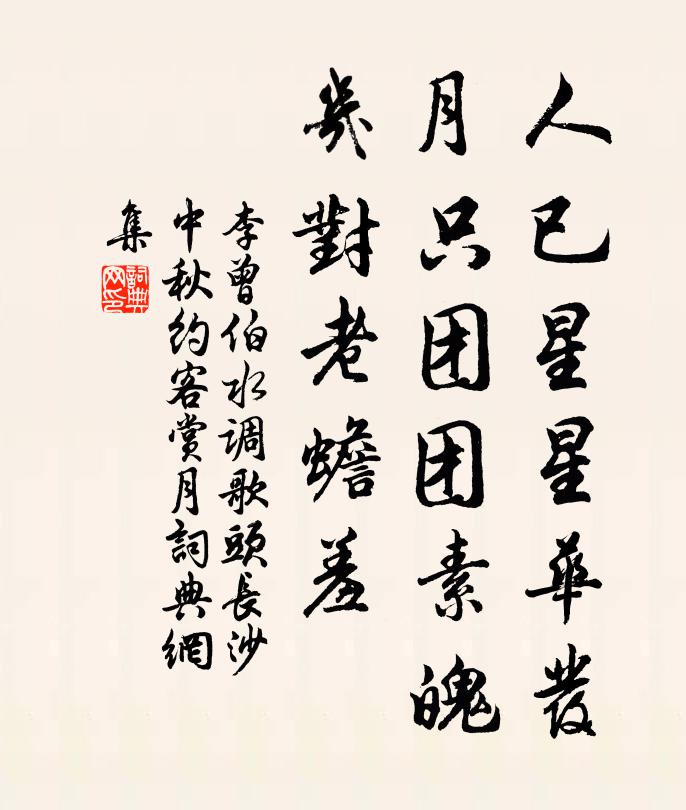 人已星星華發
月只团团素魄
幾對老蟾羞
李曾伯水调歌頭長沙
中秋約客賞月詞典網
集
詞典
网印